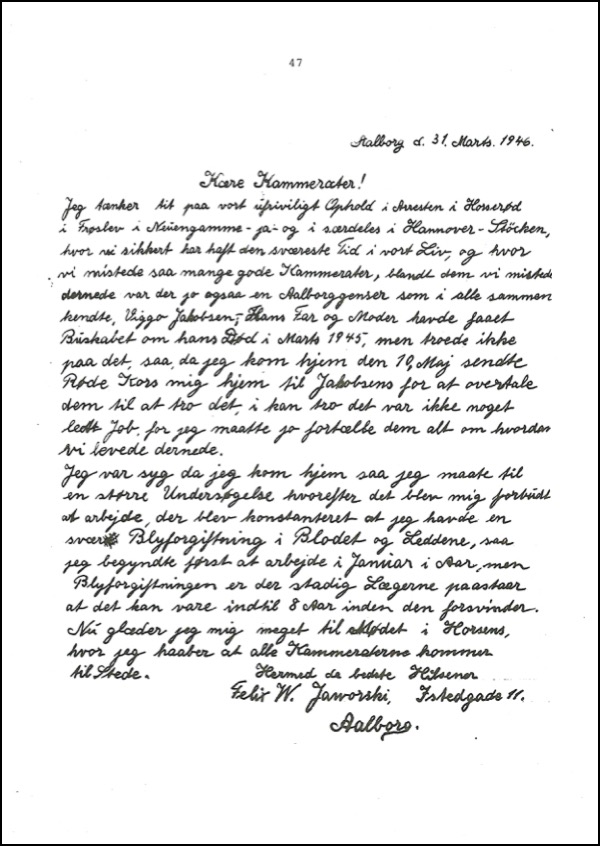 47
Aalborg d. 31. Marts. 1946.
Kære Kammerater!
Jeg tænker tit paa vort ufriviligt Ophold i Arresten i Horserød
i Frøslev i Neuengamme - ja - og i særdeles i Hannover - Stöcken,
hvor vi sikkert har haft den sværeste Tid i vort Liv, og hvor
vi mistede saa mange gode Kammerater, blandt dem vi mistede
dernede var der jo ogsaa en Aalborggenser som i alle sammen
kendte, Viggo Jakobsen,- Hans Far og Moder havde faaet
Budskabet om hans Død i Marts 1945, men troede ikke
paa det, saa, da jeg kom hjem den 10, Maj sendte
Røde Kors mig hjem til Jakobsens for at overtale
dem til at tro det, i kan tro det var ikke noget
ledt Job, for jeg maatte jo fortælle dem alt om hvordan
vi levede dernede.
Jeg var syg da jeg kom hjem saa jeg maate til
en større Undersøgelse hvorefter det blev mig forbudt
at arbejde, der blev konstanteret at jeg havde en
svær Blyforgiftning i Blodet og Leddene, saa
jeg begyndte først at arbejde i Januar i Aar, men
Blyforgiftningen er der stadig Lægerne paastaar
at det kan vare indtil 8 Aar inden den forsvinder.
Nu glæder jeg mig meget til Mødet i Horsens,
hvor jeg haaber at alle Kammeraterne kommer
til Stede. Hermed de bedste Hilsener
Felix W. Jaworski, Istedgade 11.
Aalborg.